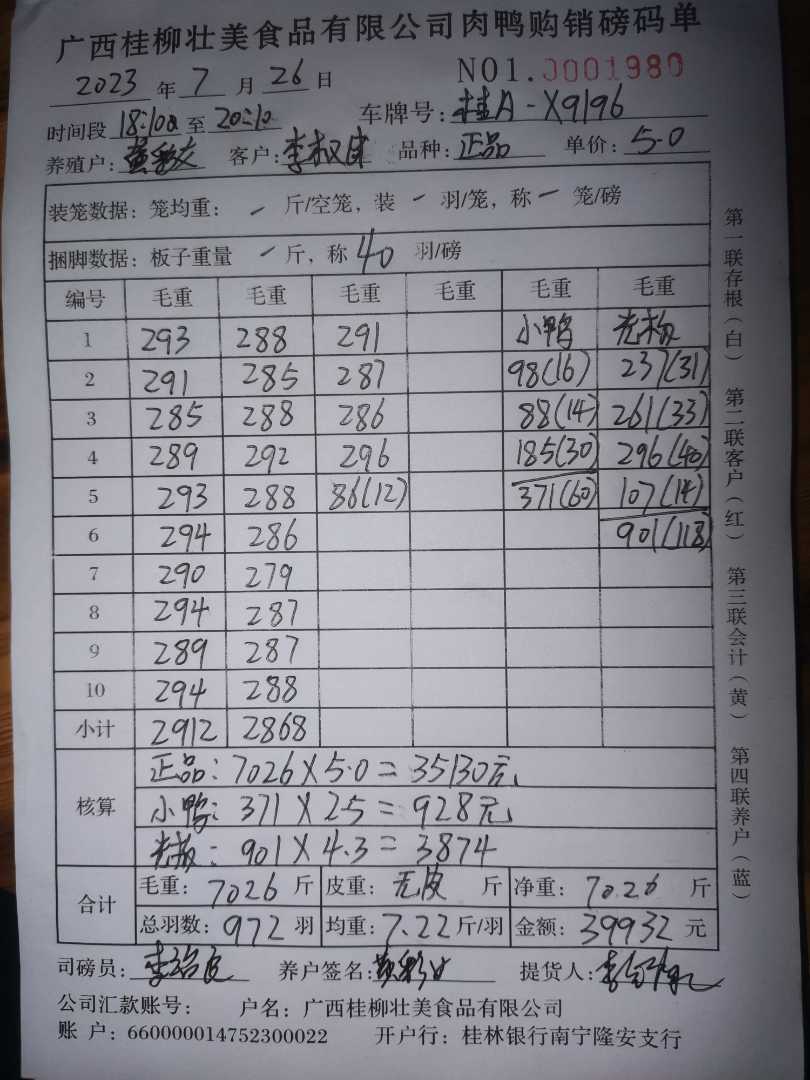 广西桂柳壮美食品有限公司肉鸭购销磅码单
2023 年 7 月 26 日 NO1.0001980
时间段 18:10 至 20:10 车牌号: 桂A-X9196
养殖户: 客户: 李 品种: 正品 单价: 5.0
装笼数据: 笼均重: - 斤/空笼, 装 - 羽/笼, 称 - 笼/磅
捆脚数据: 板子重量 - 斤, 称 40 羽/磅
编号 毛重 毛重 毛重 毛重 毛重 毛重
1 293 288 291 小鸭 光板
2 291 285 287 98(16) 237(31)
3 285 288 286 88(14) 261(33)
4 289 292 296 185(30) 296(40)
5 293 288 86(12) 371(60) 107(14)
6 294 286 901(118)
7 290 279
8 294 287
9 289 287
10 294 288
小计 2912 2868
核算
正品: 7026×5.0=35130元
小鸭: 371×2.5=928元
光板: 901×4.3=3874
合计
毛重: 7026 斤 皮重: 无皮 斤 净重: 7026 斤
总羽数: 972 羽 均重: 7.22 斤/羽 金额: 39932 元
司磅员: 李 养户签名: 提货人: 李
公司汇款账号: 户名: 广西桂柳壮美食品有限公司
账 户: 660000014752300022 开户行: 桂林银行南宁隆安支行
第一联存根(白) 第二联客户(红) 第三联会计(黄) 第四联养户(蓝)